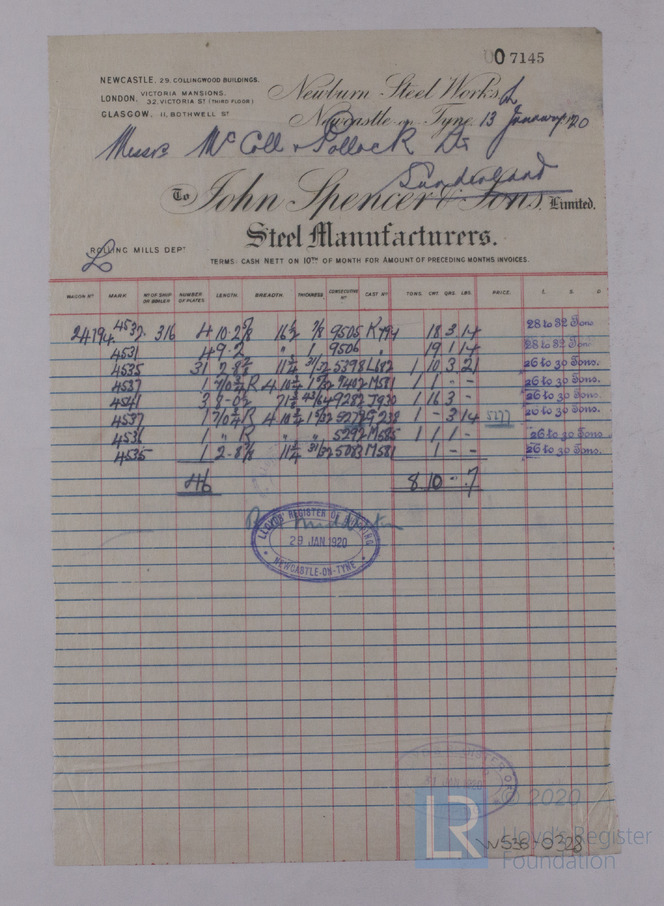 007145
NEWCASTLE, 29, COLLINGWOOD BUILDINGS.
LONDON, VICTORIA MANSIONS, 32, VICTORIA ST (THIRD FLOOR)
GLASGOW, 11, BOTHWELL ST
Newburn Steel Works,
Newcastle on Tyne, 13 January 1920
Messrs McColl & Pollock Ld
Sunderland
To John Spencer & Sons, Limited.
Steel Manufacturers.
ROLLING MILLS DEPT
TERMS: CASH NETT ON 10TH OF MONTH FOR AMOUNT OF PRECEDING MONTHS INVOICES.
WAGON No MARK No OF SHIP OR BOILER NUMBER OF PLATES. LENGTH. BREADTH. THICKNESS. CONSECUTIVE No CAST No TONS. CWT QRS. LBS. PRICE. £. S. D
24194 4532 316 4 10-2 16½ 7/8 9505 18 3 14 28 to 32 Tons
4531 4 9-2 " " 9506 " 19 1 14 28 to 32 Tons.
4535 31 2-8 11¼ 31/32 5398 L682 1 10 3 21 26 to 30 Tons.
4537 1 R 4 10 9402 M581 1 1 - - 26 to 30 Tons.
4541 3 8-0½ 9282 1 16 3 - 26 to 30 Tons.
4537 1 R 4 10 5279 G238 1 - 3 14 5277 26 to 30 Tons.
4536 1 " R " " 5292 M585 1 1 1 - 26 to 30 Tons
4535 1 2-8 11¼ 31/32 5083 M581 1 - - 26 to 30 Tons.
46 8 10 - 7
LLOYDS' REGISTER OF SHIPPING
29 JAN 1920
NEWCASTLE-ON-TYNE
31 JAN 1920
© 2020
LR
Lloyd's Register
Foundation
W536-0328